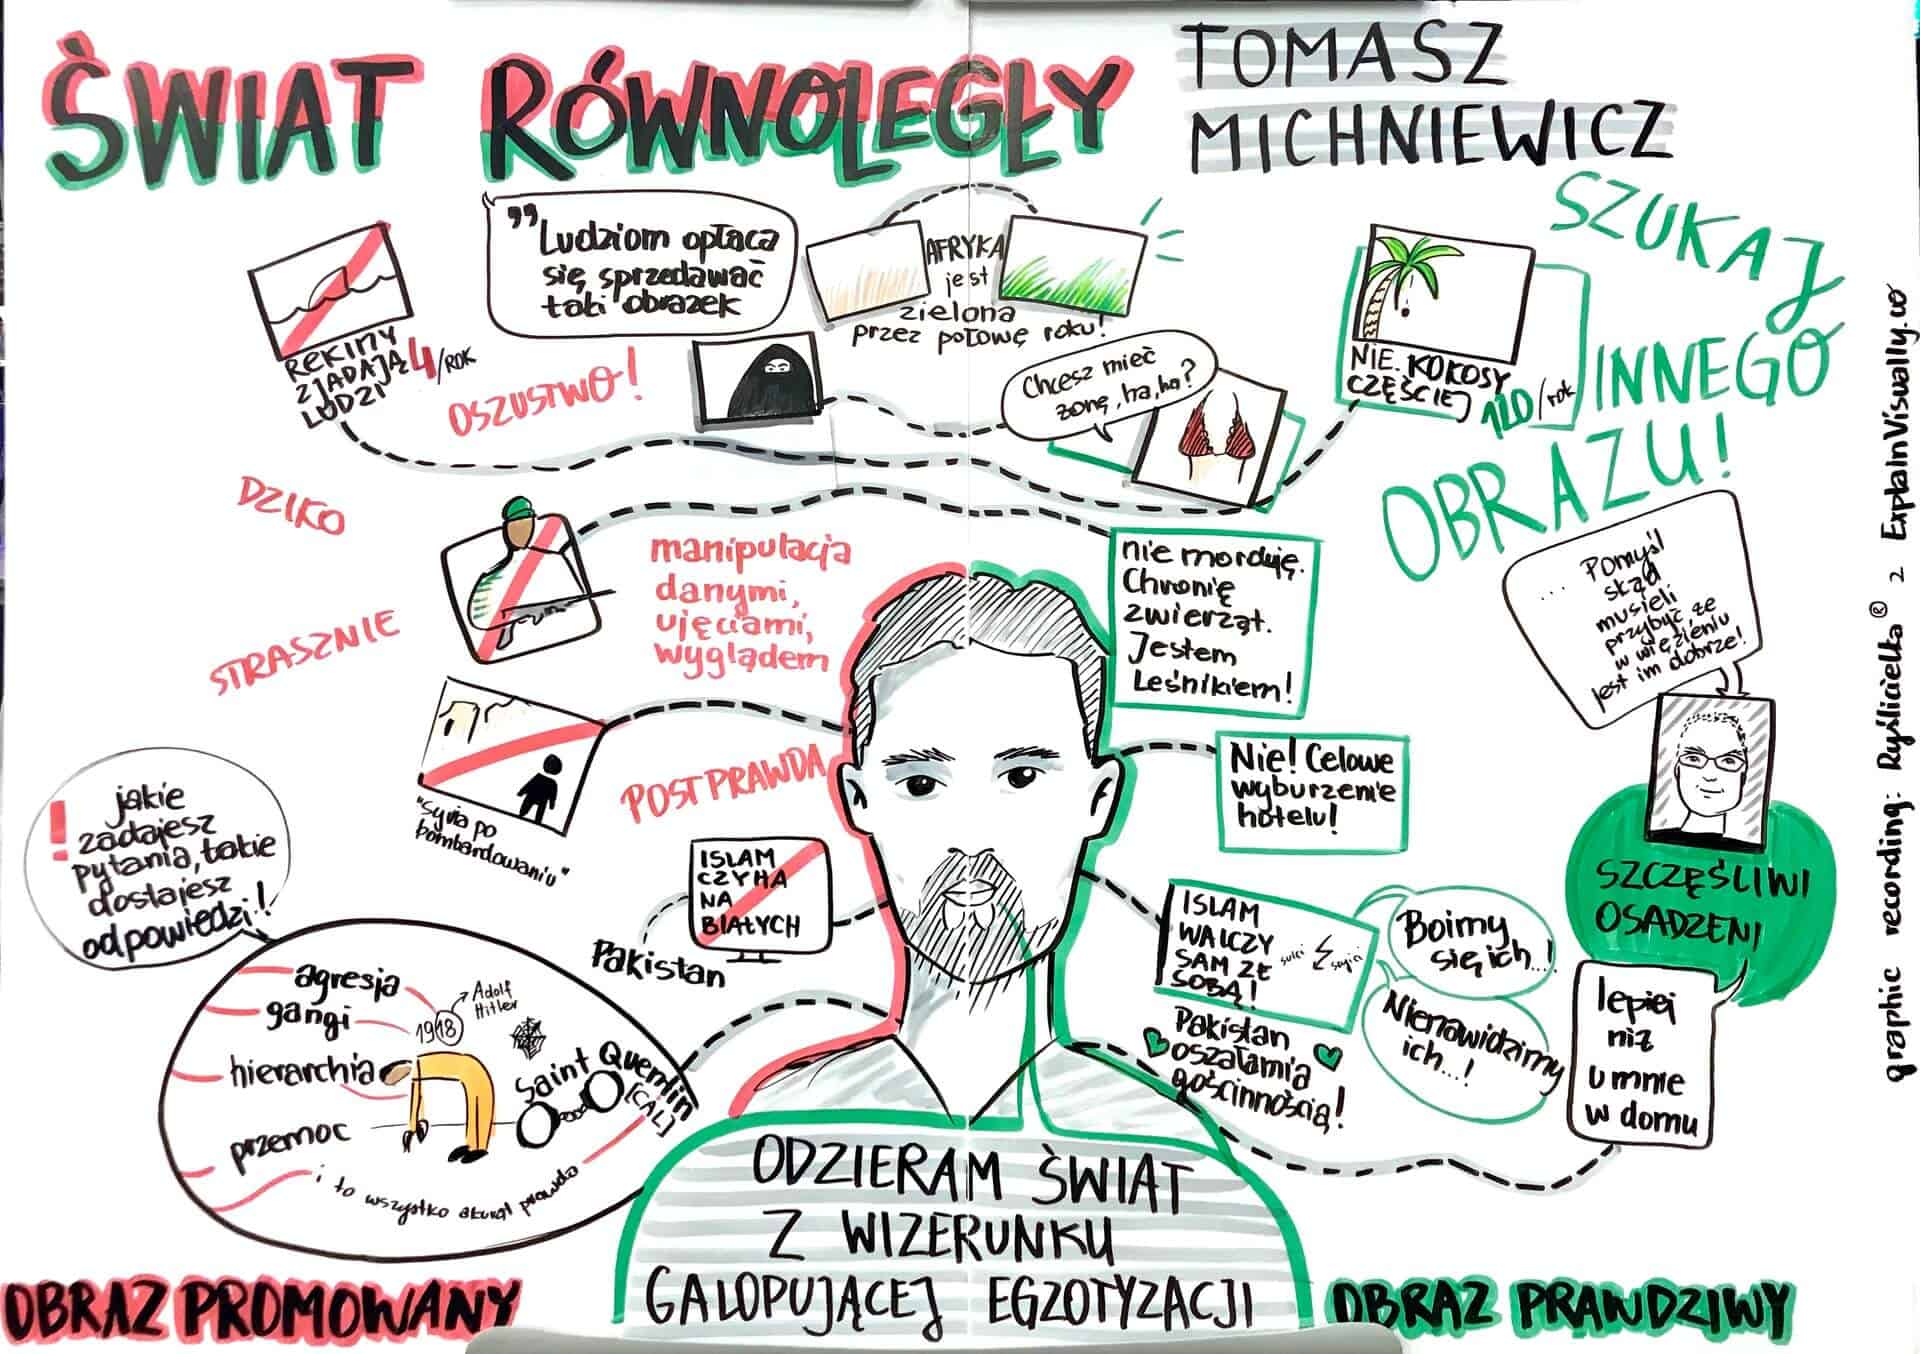 ŚWIAT RÓWNOLEGŁY
TOMASZ
MICHNIEWICZ
SZUKAJ
INNEGO
OBRAZU!
REKINY
ZJADAJĄ 4/ROK
LUDZI
"Ludziom opłaca
się sprzedawać
taki obrazek
OSZUSTWO!
AFRYKA
jest
zielona
przez połowę roku!
Chcesz mieć
żonę, ha, ha?
NIE. KOKOSY
CZĘŚCIEJ
120/rok
DZIKO
STRASZNIE
manipulacja
danymi,
ujęciami,
wyglądem
nie morduję.
Chronię
zwierząt.
Jestem
Leśnikiem!
... Pomyśl
skąd
musieli
przybyć, że
w więzieniu
jest im dobrze!
POSTPRAWDA
"Syria po
bombardowaniu"
Nie! Celowe
wyburzenie
hotelu!
! jakie
zadajesz
pytania, takie
dostajesz
odpowiedzi!
ISLAM
CZYHA
NA
BIAŁYCH
Pakistan
ISLAM
WALCZY
SAM ZE
SOBĄ!
Boimy
się ich...!
Nienawidzimy
ich...!
Pakistan
oszałamia
gościnnością!
SZCZĘŚLIWI
OSADZENI
lepiej
niż
u mnie
w domu
agresja
gangi
hierarchia
przemoc
1918
Adolf
Hitler
Saint Quentin
[CAL]
i to wszystko akurat prawda
ODZIERAM ŚWIAT
Z WIZERUNKU
GALOPUJĄCEJ EGZOTYZACJI
OBRAZ PROMOWANY
OBRAZ PRAWDZIWY
graphic recording: Ryślicielka® z ExplainVisually.co